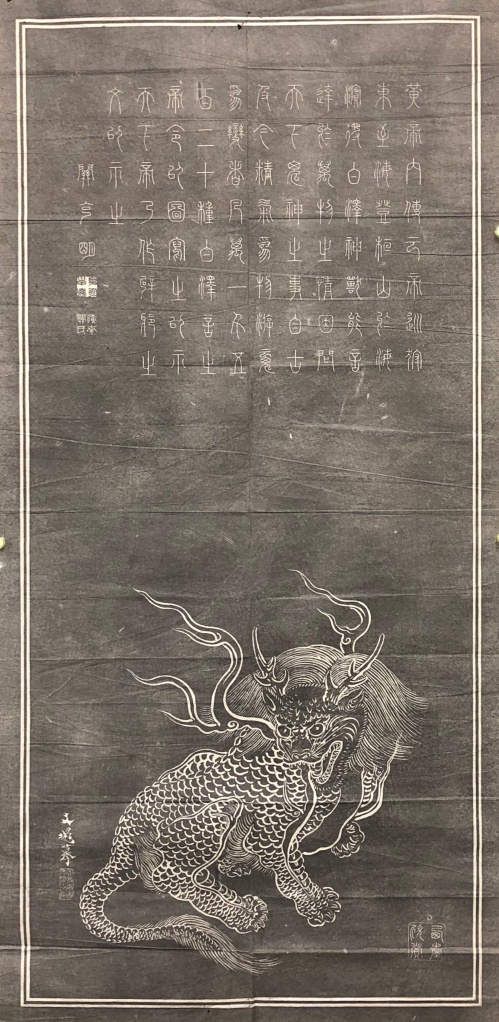 黃帝內傳云帝巡狩
東至海登桓山於海
濱得白澤神獸能言
達於萬物之情因問
天下鬼神之事自古
及今精氣爲物游魂
爲變者凡萬一千五
百二十種白澤言之
帝令以圖寫之以示
天下帝乃作辟邪之
文以示之
關克明
文晁摹